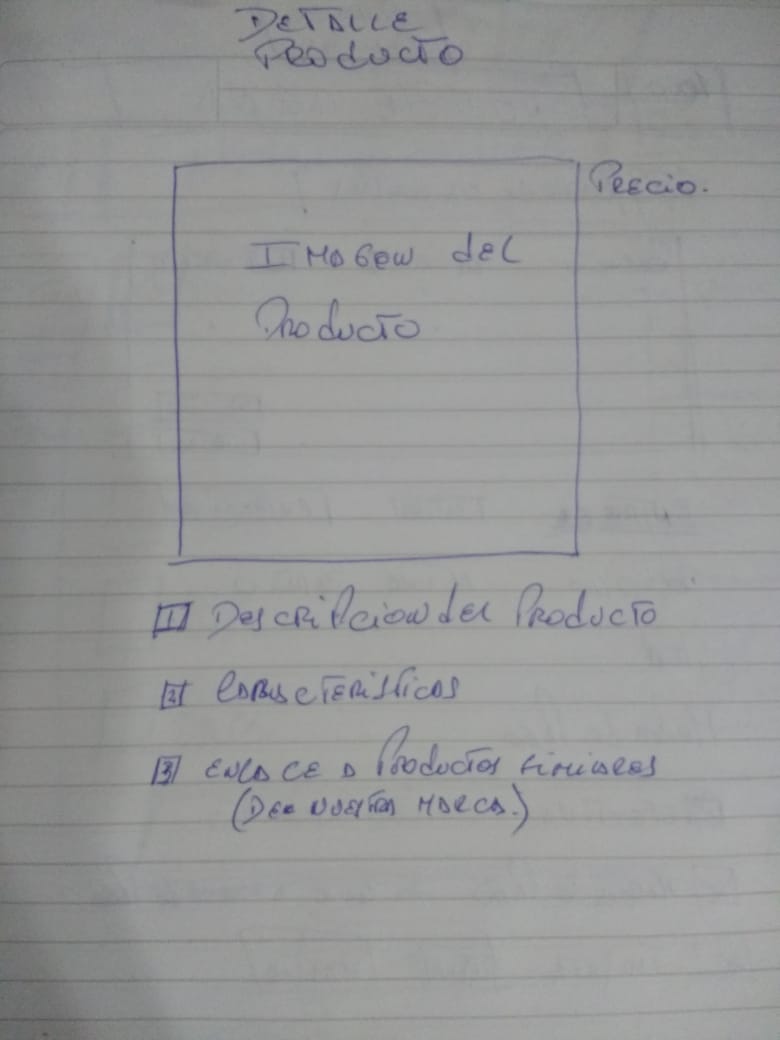 DETALLE
Producto
Precio.
Imagen del
Producto
1 Descripcion del Producto
2 Caracteristicas
3 Enlace a Productos similares
(De nuestra marca.)